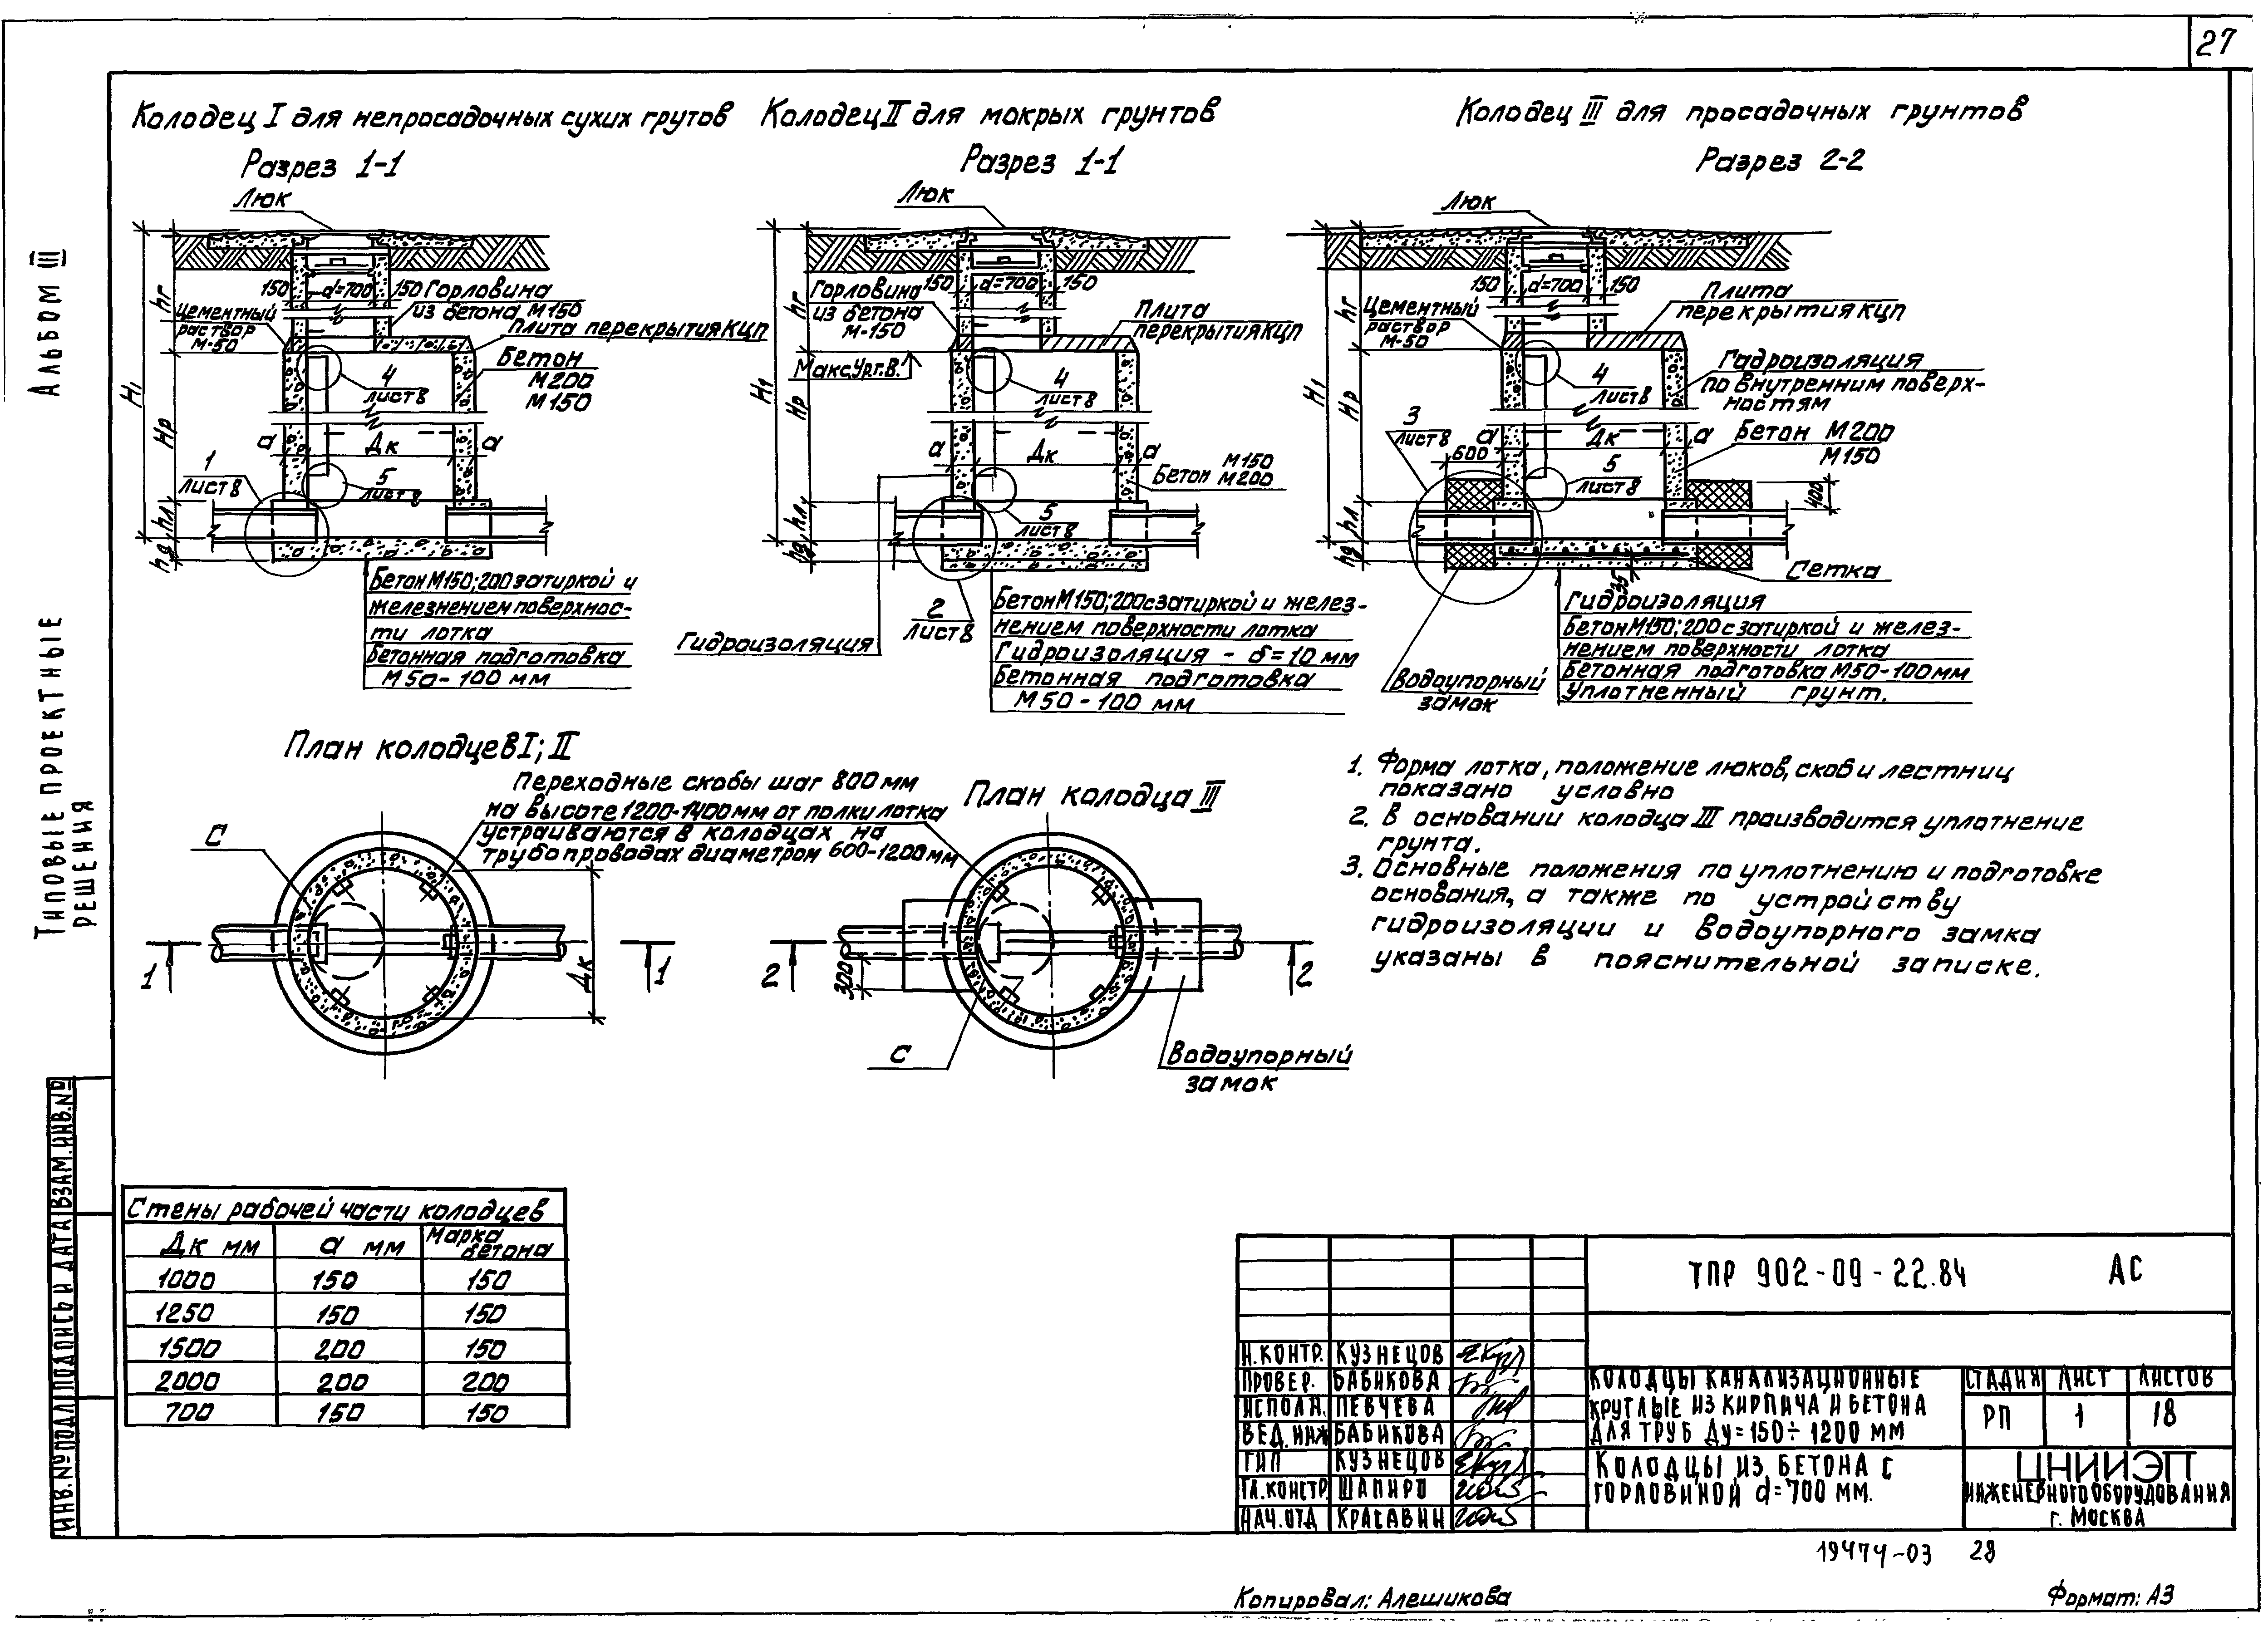 27
Альбом III
Типовые проектные
решения
Колодец I для непросадочных сухих грутов
Разрез 1-1
Люк
H1
hг
Hр
hл
hд
150
d=700
150
Горловина
из бетона М150
Цементный
раствор
М-50
Плита перекрытия КЦП
Бетон
М200
М150
4
Лист 8
а
Дк
а
1
Лист 8
5
Лист 8
Бетон М150;200 затиркой и
железнением поверхнос-
ти лотка
Бетонная подготовка
М50-100 мм
Колодец II для мокрых грунтов
Разрез 1-1
Люк
H1
hг
Hр
hл
hд
150
d=700
150
Горловина
из бетона
М-150
Плита
перекрытия КЦП
Макс.Ур.г.в.
4
Лист 8
а
Дк
а
М150
Бетон М200
5
Лист 8
2
Лист 8
Гидроизоляция
Бетон М150;200 с затиркой и желез-
нением поверхности лотка
Гидроизоляция - δ=10 мм
Бетонная подготовка
М50-100 мм
Колодец III для просадочных грунтов
Разрез 2-2
Люк
H1
hг
Hр
hл
hд
150
d=700
150
Плита
перекрытия КЦП
Цементный
раствор
М-50
Гидроизоляция
по внутренним поверх-
ностям
4
Лист 8
3
Лист 8
600
а
Дк
а
Бетон М200
М150
5
Лист 8
400
Сетка
35
Водоупорный
замок
Гидроизоляция
Бетон М150;200 с затиркой и желез-
нением поверхности лотка
Бетонная подготовка М50-100мм
Уплотненный грунт.
План колодцев I; II
Переходные скобы шаг 800 мм
на высоте 1200-1400мм от полки лотка
устраиваются в колодцах на
трубопроводах диаметром 600-1200мм
С
Дк
1
1
План колодца III
2
2
300
С
Водоупорный
замок
1. Форма лотка, положение люков, скоб и лестниц
показано условно
2. В основании колодца III производится уплотнение
грунта.
3. Основные положения по уплотнению и подготовке
основания, а также по устройству
гидроизоляции и водоупорного замка
указаны в пояснительной записке.
Стены рабочей части колодцев
Дк мм а мм Марка бетона
1000 150 150
1250 150 150
1500 200 150
2000 200 200
700 150 150
Инв.№ подл. Подпись и дата Взам.инв.№
ТПР 902-09-22.84 АС
Н.контр. Кузнецов
Провер. Бабикова
Исполн. Певчева
Вед.инж Бабикова
ГИП Кузнецов
Гл.констр. Шапиро
Нач.отд Красавин
Колодцы канализационные
круглые из кирпича и бетона
для труб Ду=150÷1200 мм
Стадия Лист Листов
РП 1 18
Колодцы из бетона с
горловиной d=700 мм.
ЦНИИЭП
инженерного оборудования
г. Москва
19474-03 28
Копировал: Алешикова
Формат: А3